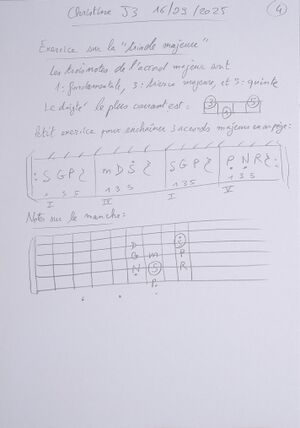 Christine J3 16/09/2025 4
Exercice sur la "triade majeure"
Les trois notes de l'accord majeur sont
1: fondamentale, 3: tierce majeure, et 5: quinte
Le doigté le plus courant est: 3 1 5
Petit exercice pour enchaîner 3 accords majeurs en arpège:
S G P | m D S | S G P | P N R
1 3 5 1 3 5 1 3 5 1 3 5
I IV I V
Notes sur le manche:
D S
G m P
N S R
P